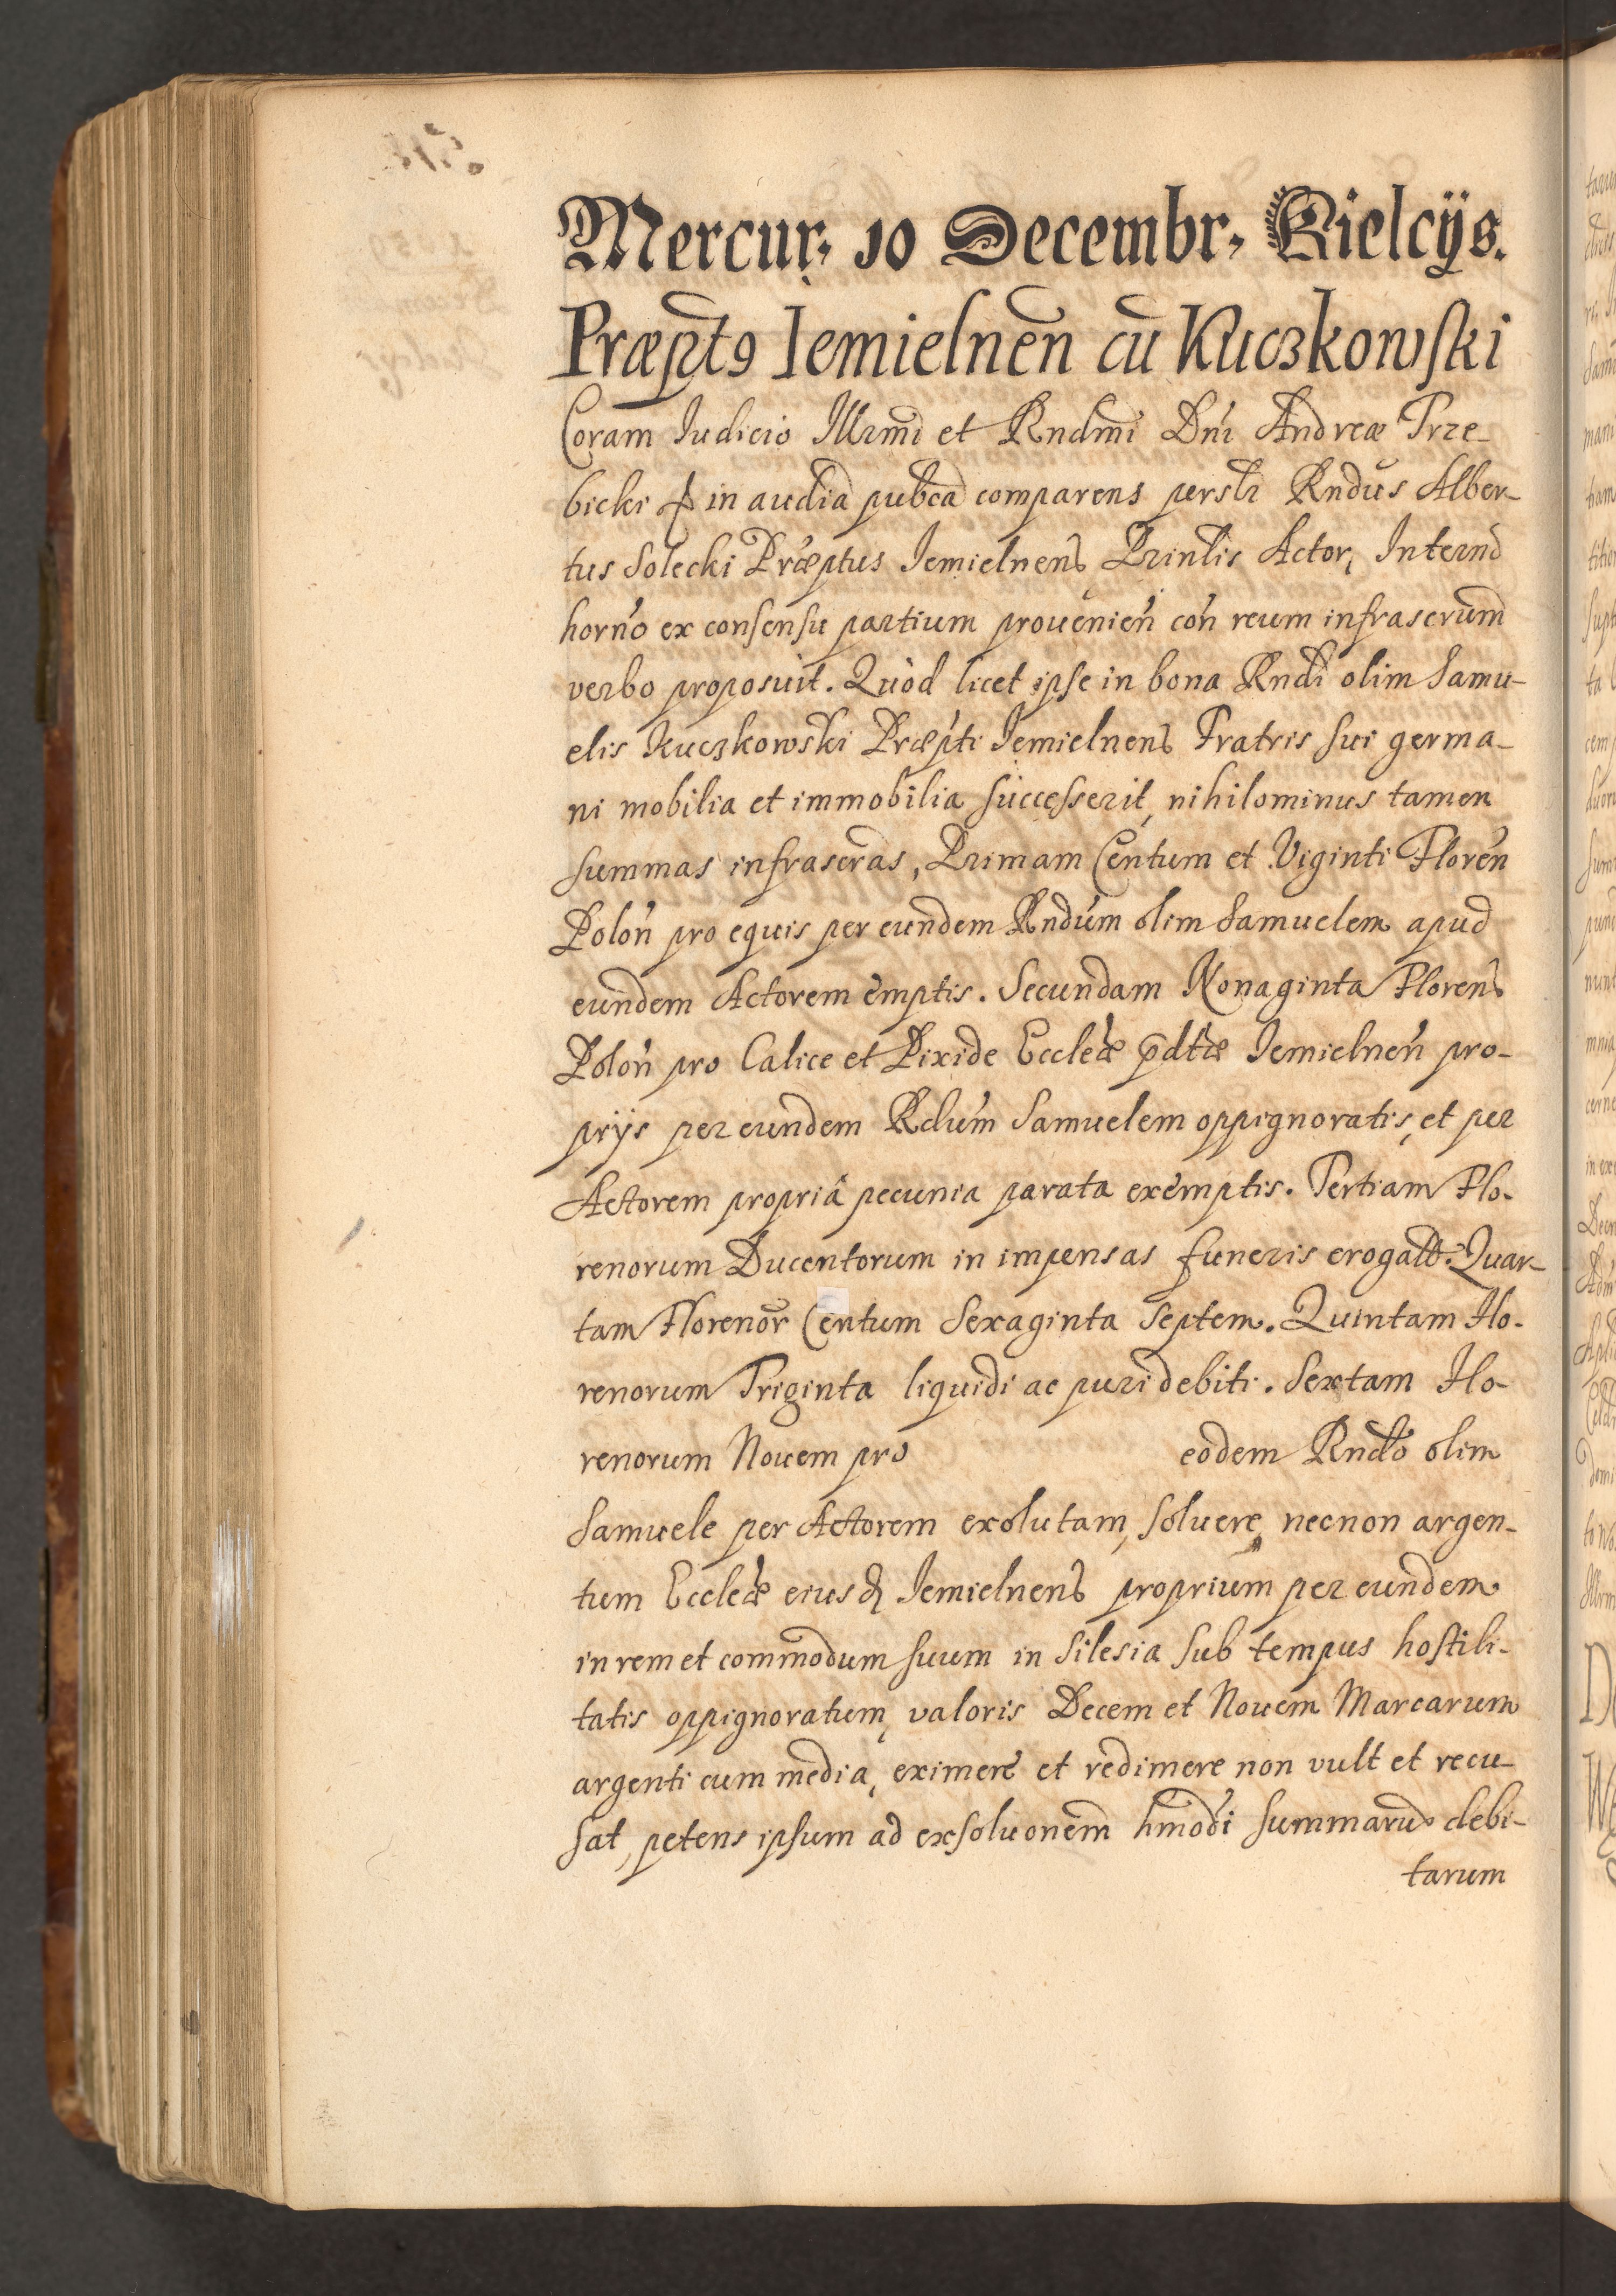 Mercur, 10 Decembr, Kielcÿs.
Præpt9 Iemielnen̄ cū Kuczkowski
Coram Iudicio Illrmi et Rndmi Dni Andreæ Trze-
bicki in audia pubca comparens persli Rndus Alber-
tus Solecki Præptus Iemielnens Prinlis Actor, In
horno ex consensu partium prouenien con reum infrascrum
verbo proposuit. Quod licet ipse in bona Rndi olim Samu-
elis Kuczkowski Præpti Iemielnens Fratris sui germa-
ni mobilia et immobilia successerit, nihilominus tamen
summas infrascras, Primam Centum et Viginti Floren
Polon pro equis per eundem Rndum olim Samuelem apud
eundem Actorem emptis. Secundam Nonaginta Florens
Polon pro Calice et Pixide Eccleæ pdtæ Iemielnen pro-
prÿs per eundem Rdum Samuelem oppignoratis, et per
Actorem propriâ pecunia parata exemptis. Tertiam Flo-
renorum Ducentorum in impensas funeris erogatt. Quar-
tam Florenor Centum Sexaginta Septem. Quintam Flo-
renorum Triginta liquidi ac puri debiti. Sextam Flo-
renorum Nouem pro eodem Rndo olim
Samuele per Actorem exolutam, soluere, necnon argen-
tum Eccleæ eiusd Iemielnens proprium per eundem
in rem et commodum suum in Silesia sub tempus hostili-
tatis oppignoratum, valoris Decem et Nouem Marcarum
argenti cum media, eximere et redimere non vult et recu-
sat, petens ipsum ad exsoluonem hmodi summaru debi-
tarum